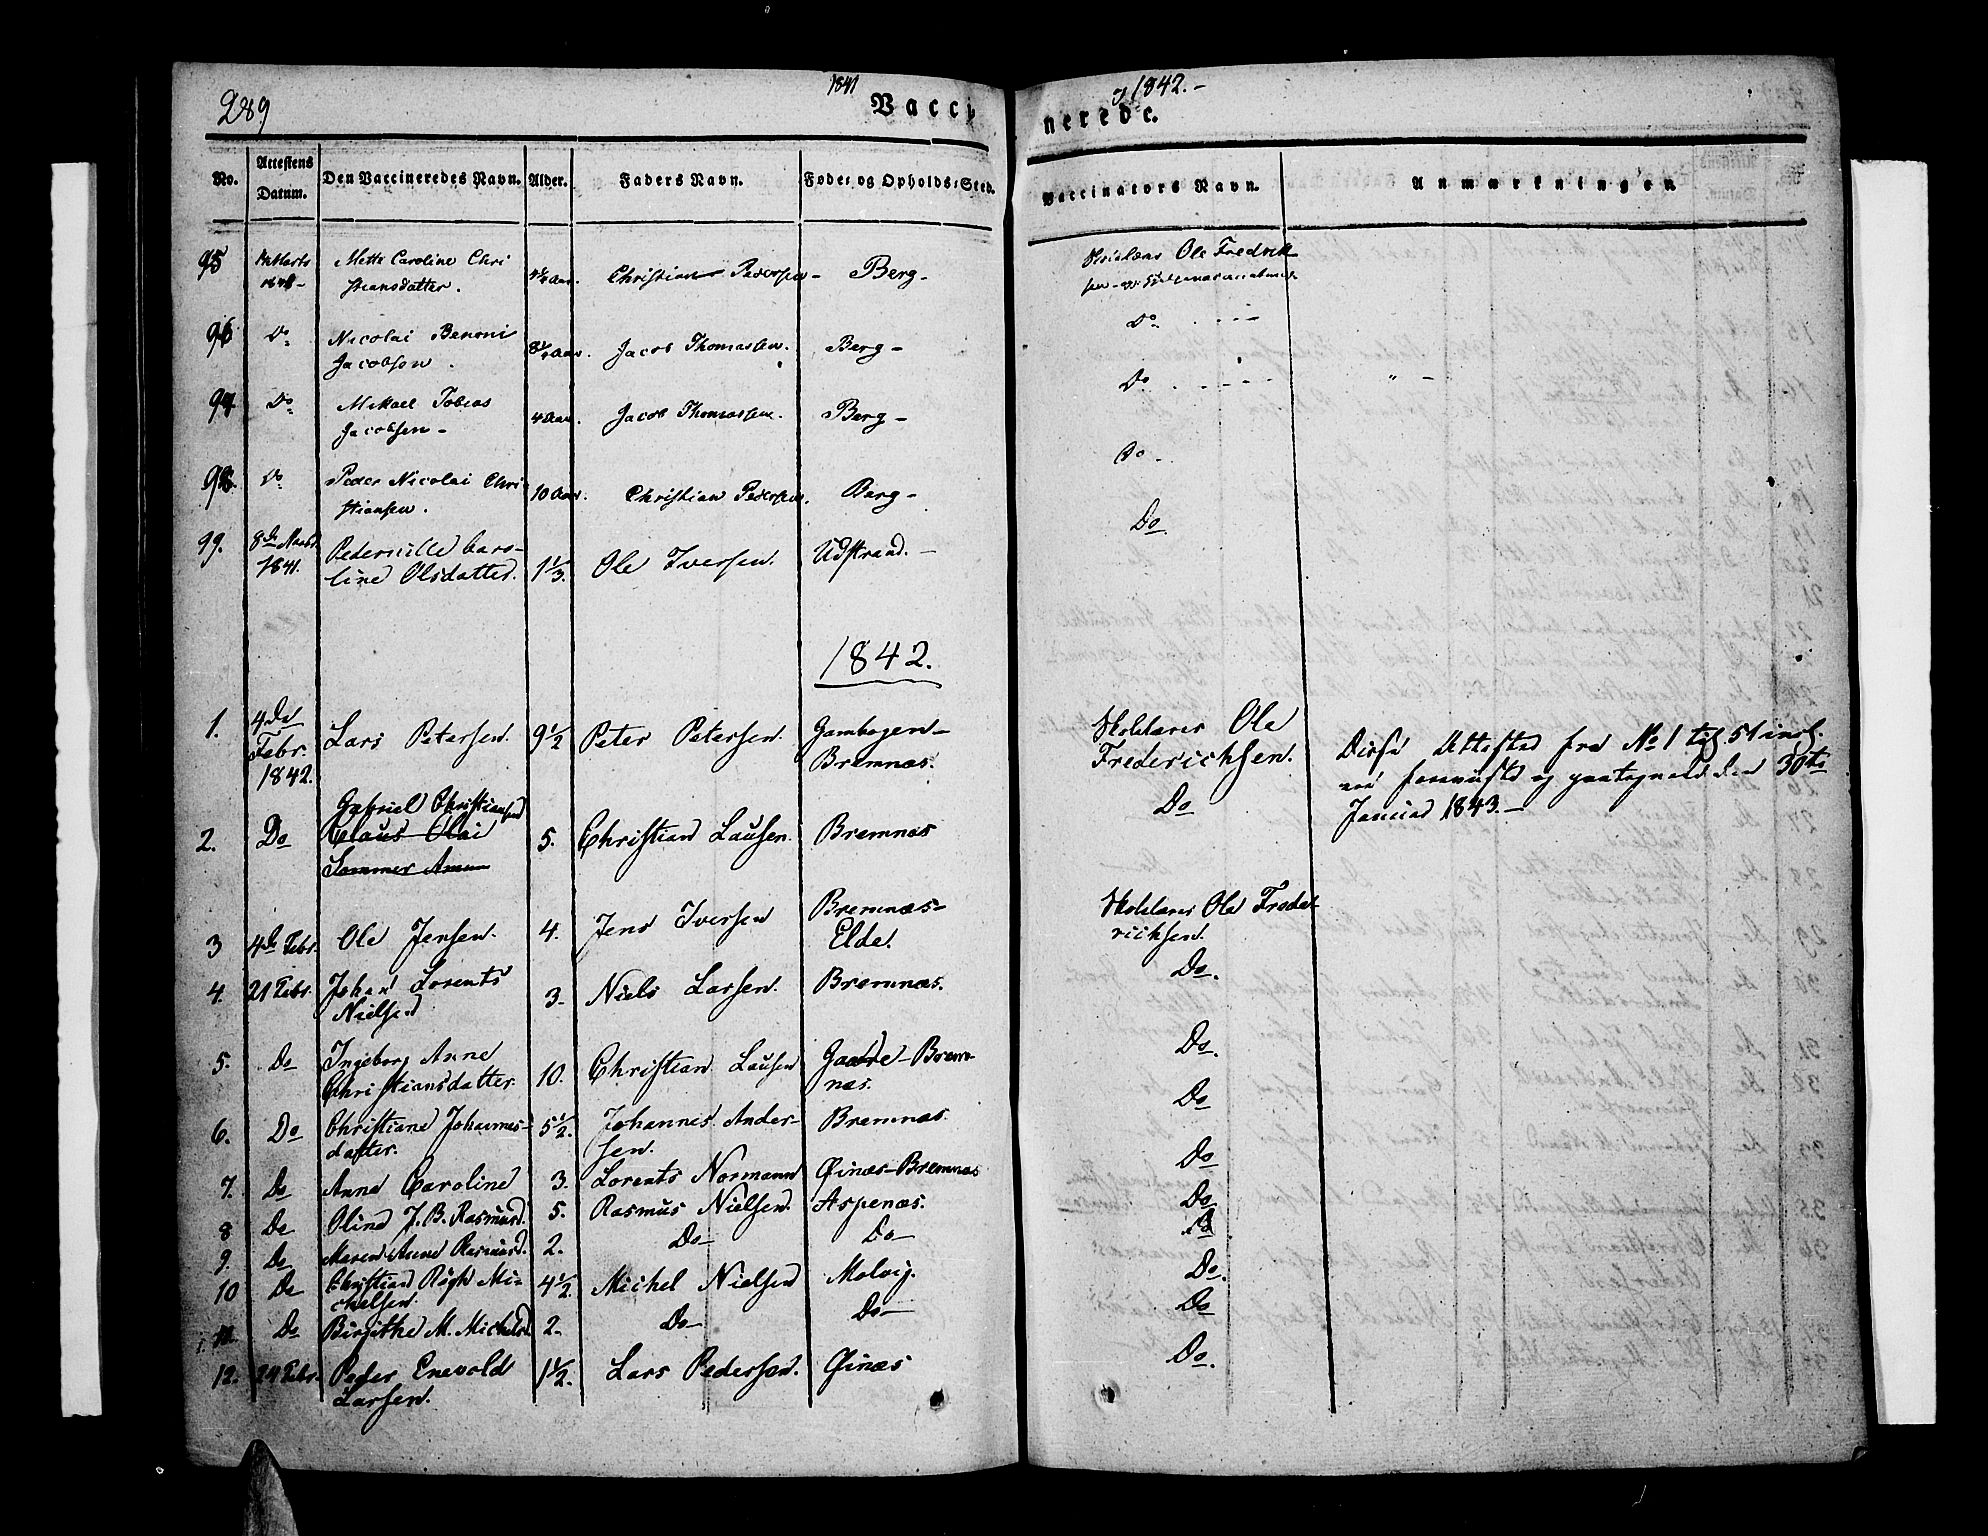 289
1841
1842.-
Vacci
nerede.
No.
Attestens
Datum.
Den Vaccineredes Navn.
Alder.
Faders Navn.
Føde- og Opholds-Sted.
Vaccinators Navn.
Anmærkninger
95 Mette Caroline Chri
stiansdatter. Christian Pedersen - Berg -
Ole Fredrik
96 Do Nicolai Benoni
Jacobsen. Jacob Thomassen. Berg -
Do
97 Do Mikael Tobias
Jacobsen - 4 Aar. Jacob Thomassen. Berg -
Do
98. Do Peder Nicolai Chri
stiansen. 10 Aar. Christian Pedersen. Berg -
Do -
99. 8de
1841. Pedernille Caro-
line Olsdatter. 1 1/3. Ole Iversen. Udstrand. -
Do
1842.
1. 4de
Febr.
1842. Lars Petersen. 9 1/2 Peter Petersen. Gambogen-
Bremnæs.
Skolelærer Ole
Frederichsen.
Disse Attester fra No 1 til 51 incl.
ere foreviiste og paategnede den 30te
Januar 1843. -
Gabriel Christiansen
2. Do Claus Olai 5. Christian Lausen. Bremnæs
Sommer
Do
3 4de Febr. Ole Jensen. 4. Jens Iversen Bremnæs-
Elde.
Skolelærer Ole Frede
richsen.
4. 21 Febr. Johan Lorents
Nielsen 3- Niels Larsen. Bremnæs.
Do.
5. Do Ingeborg Anne
Christiansdatter. 10. Christian Lausen Gaare-Brem-
næs.
Do.
6. Do Christiane Johannes-
datter. 5 1/2. Johannes Ander-
sen. Bremnæs
Do
7. Do Anne Caroline 3. Lorents Normann Øinæs-Bremnæs
Do
8 Do Oline J. B. Rasmusd. 5. Rasmus Nielsen. Aspenæs.
Do
9. Do Maren Anne Rasmusd. 2. Do- Do-
Do
10 Do Christian Mi-
chelsen. 4 1/2 Michel Nielsen Molvig.
Do.
11. Do Birgithe M. Michelsd. 2- Do- Do-
Do
12. 24 Febr. Peder Enevold
Larsen. 1 1/2. Lars Pedersen. Øinæs
Do.